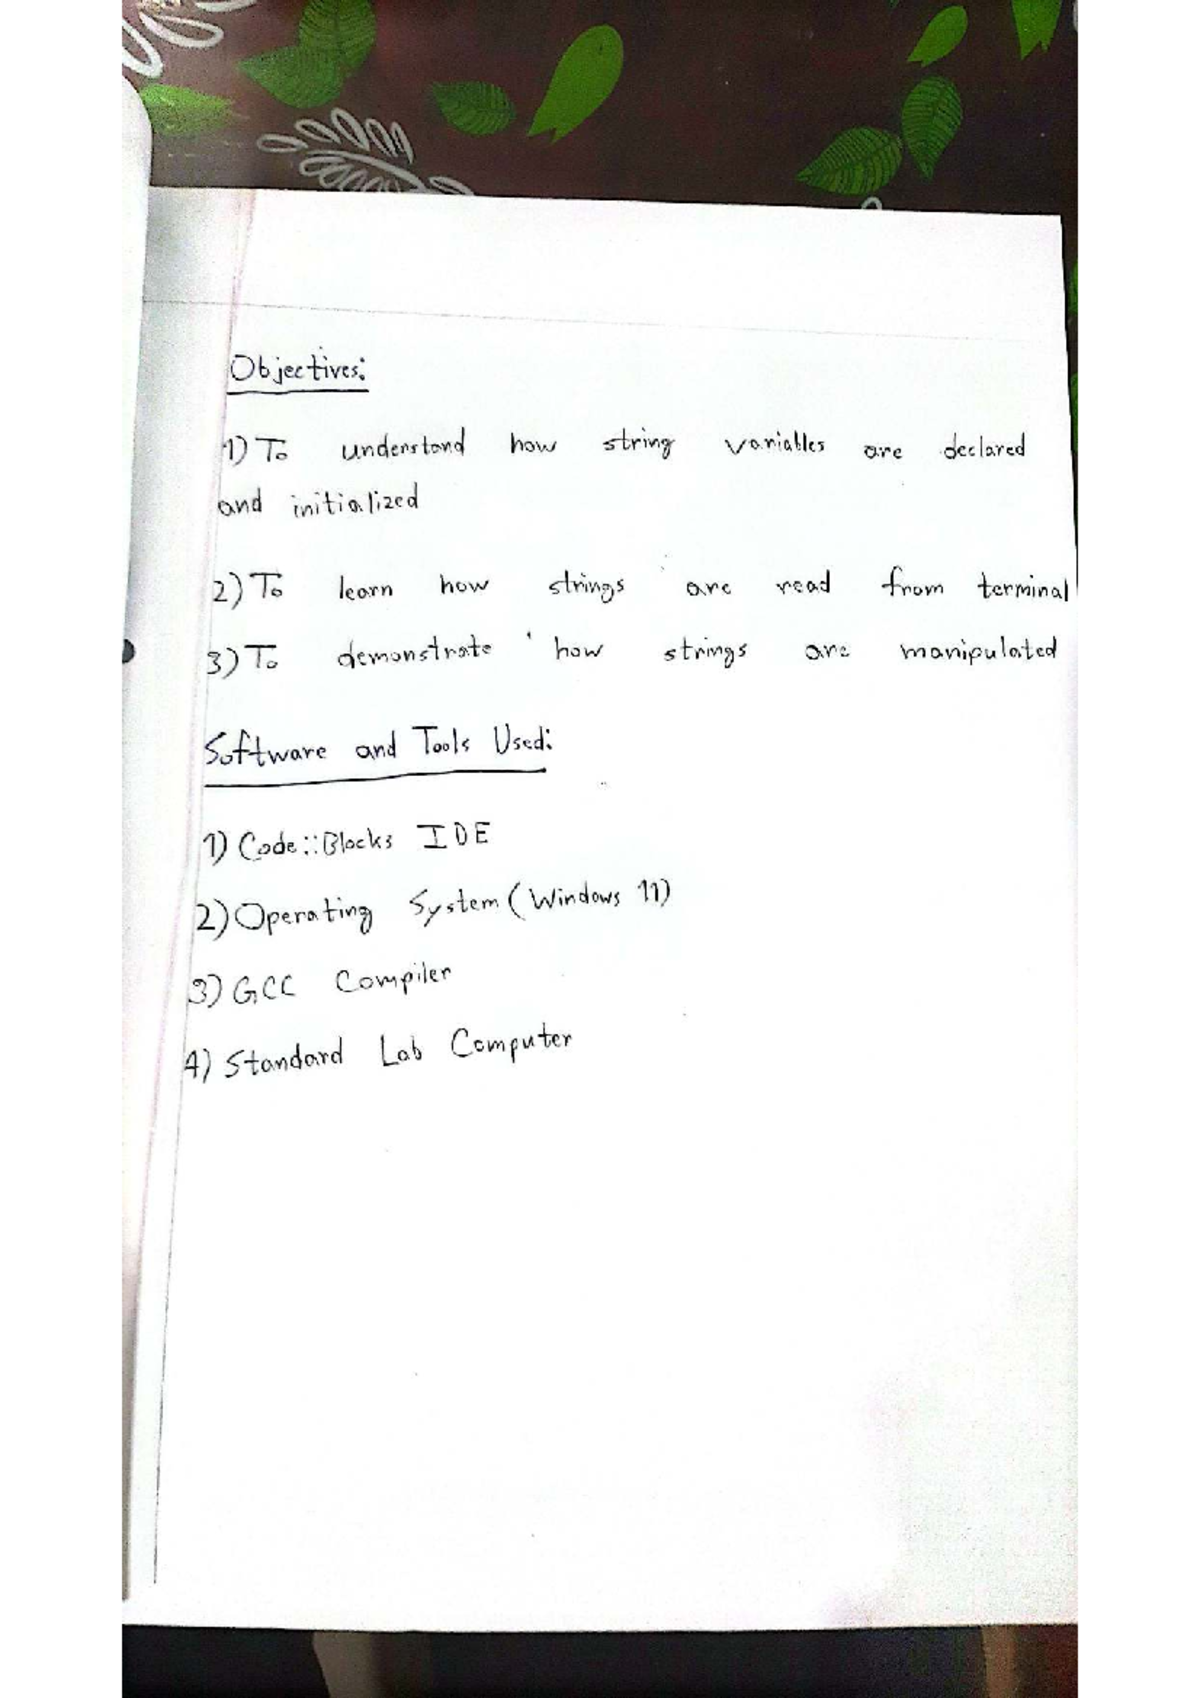 Objectives:
1) To understand how string variables are declared
and initialized
2) To learn how strings are read from terminal
3) To demonstrate how strings are manipulated
Software and Tools Used:
1) Code::Blocks IDE
2) Operating System (Windows 11)
3) GCC Compiler
4) Standard Lab Computer